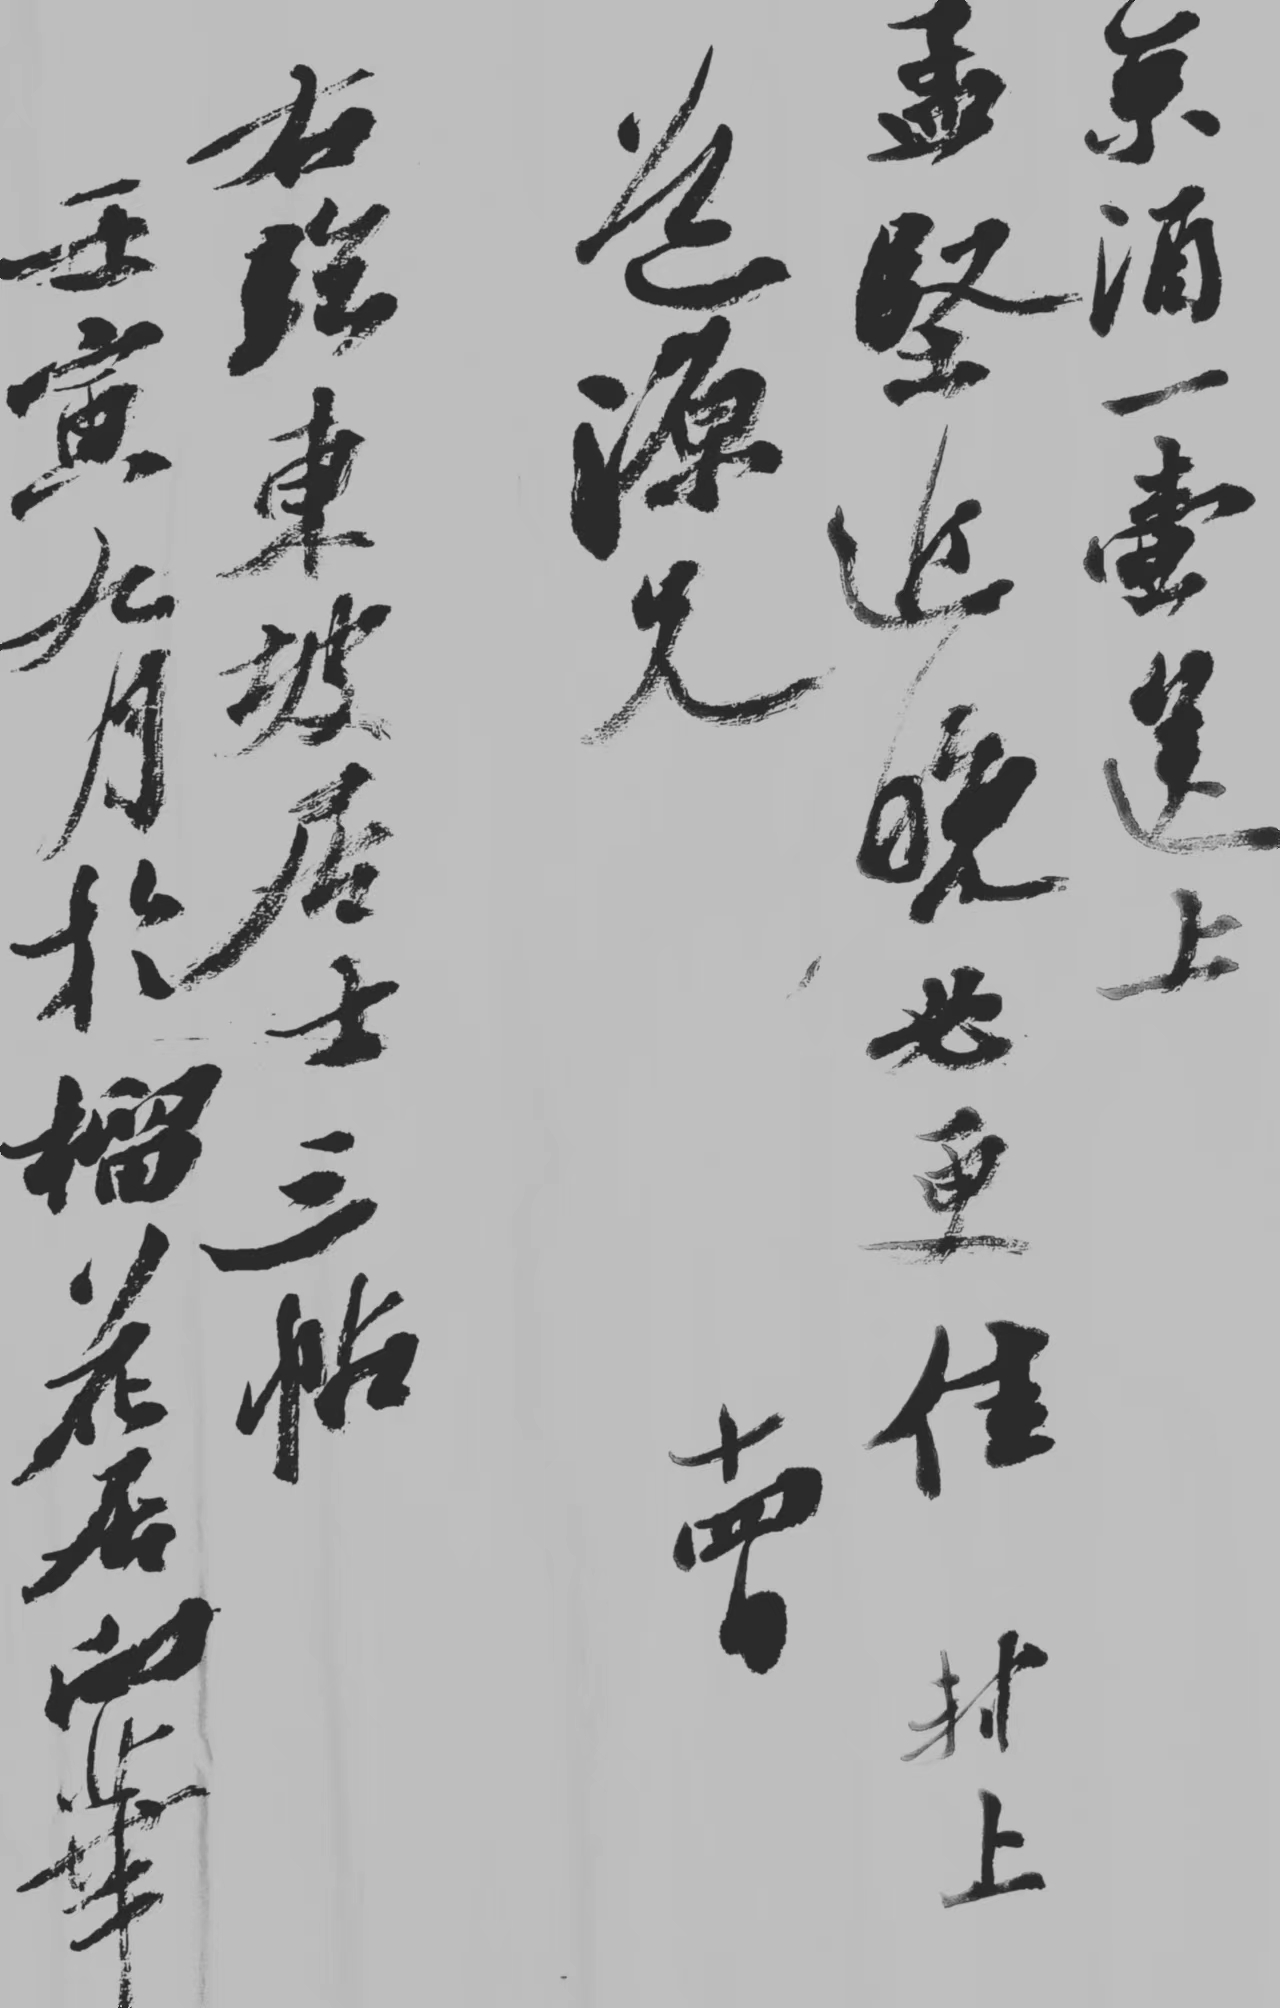 京酒一壺送上
孟堅近晚必更佳 封上
道源兄
十四日
右臨東坡居士三帖
壬寅九月於榴花居